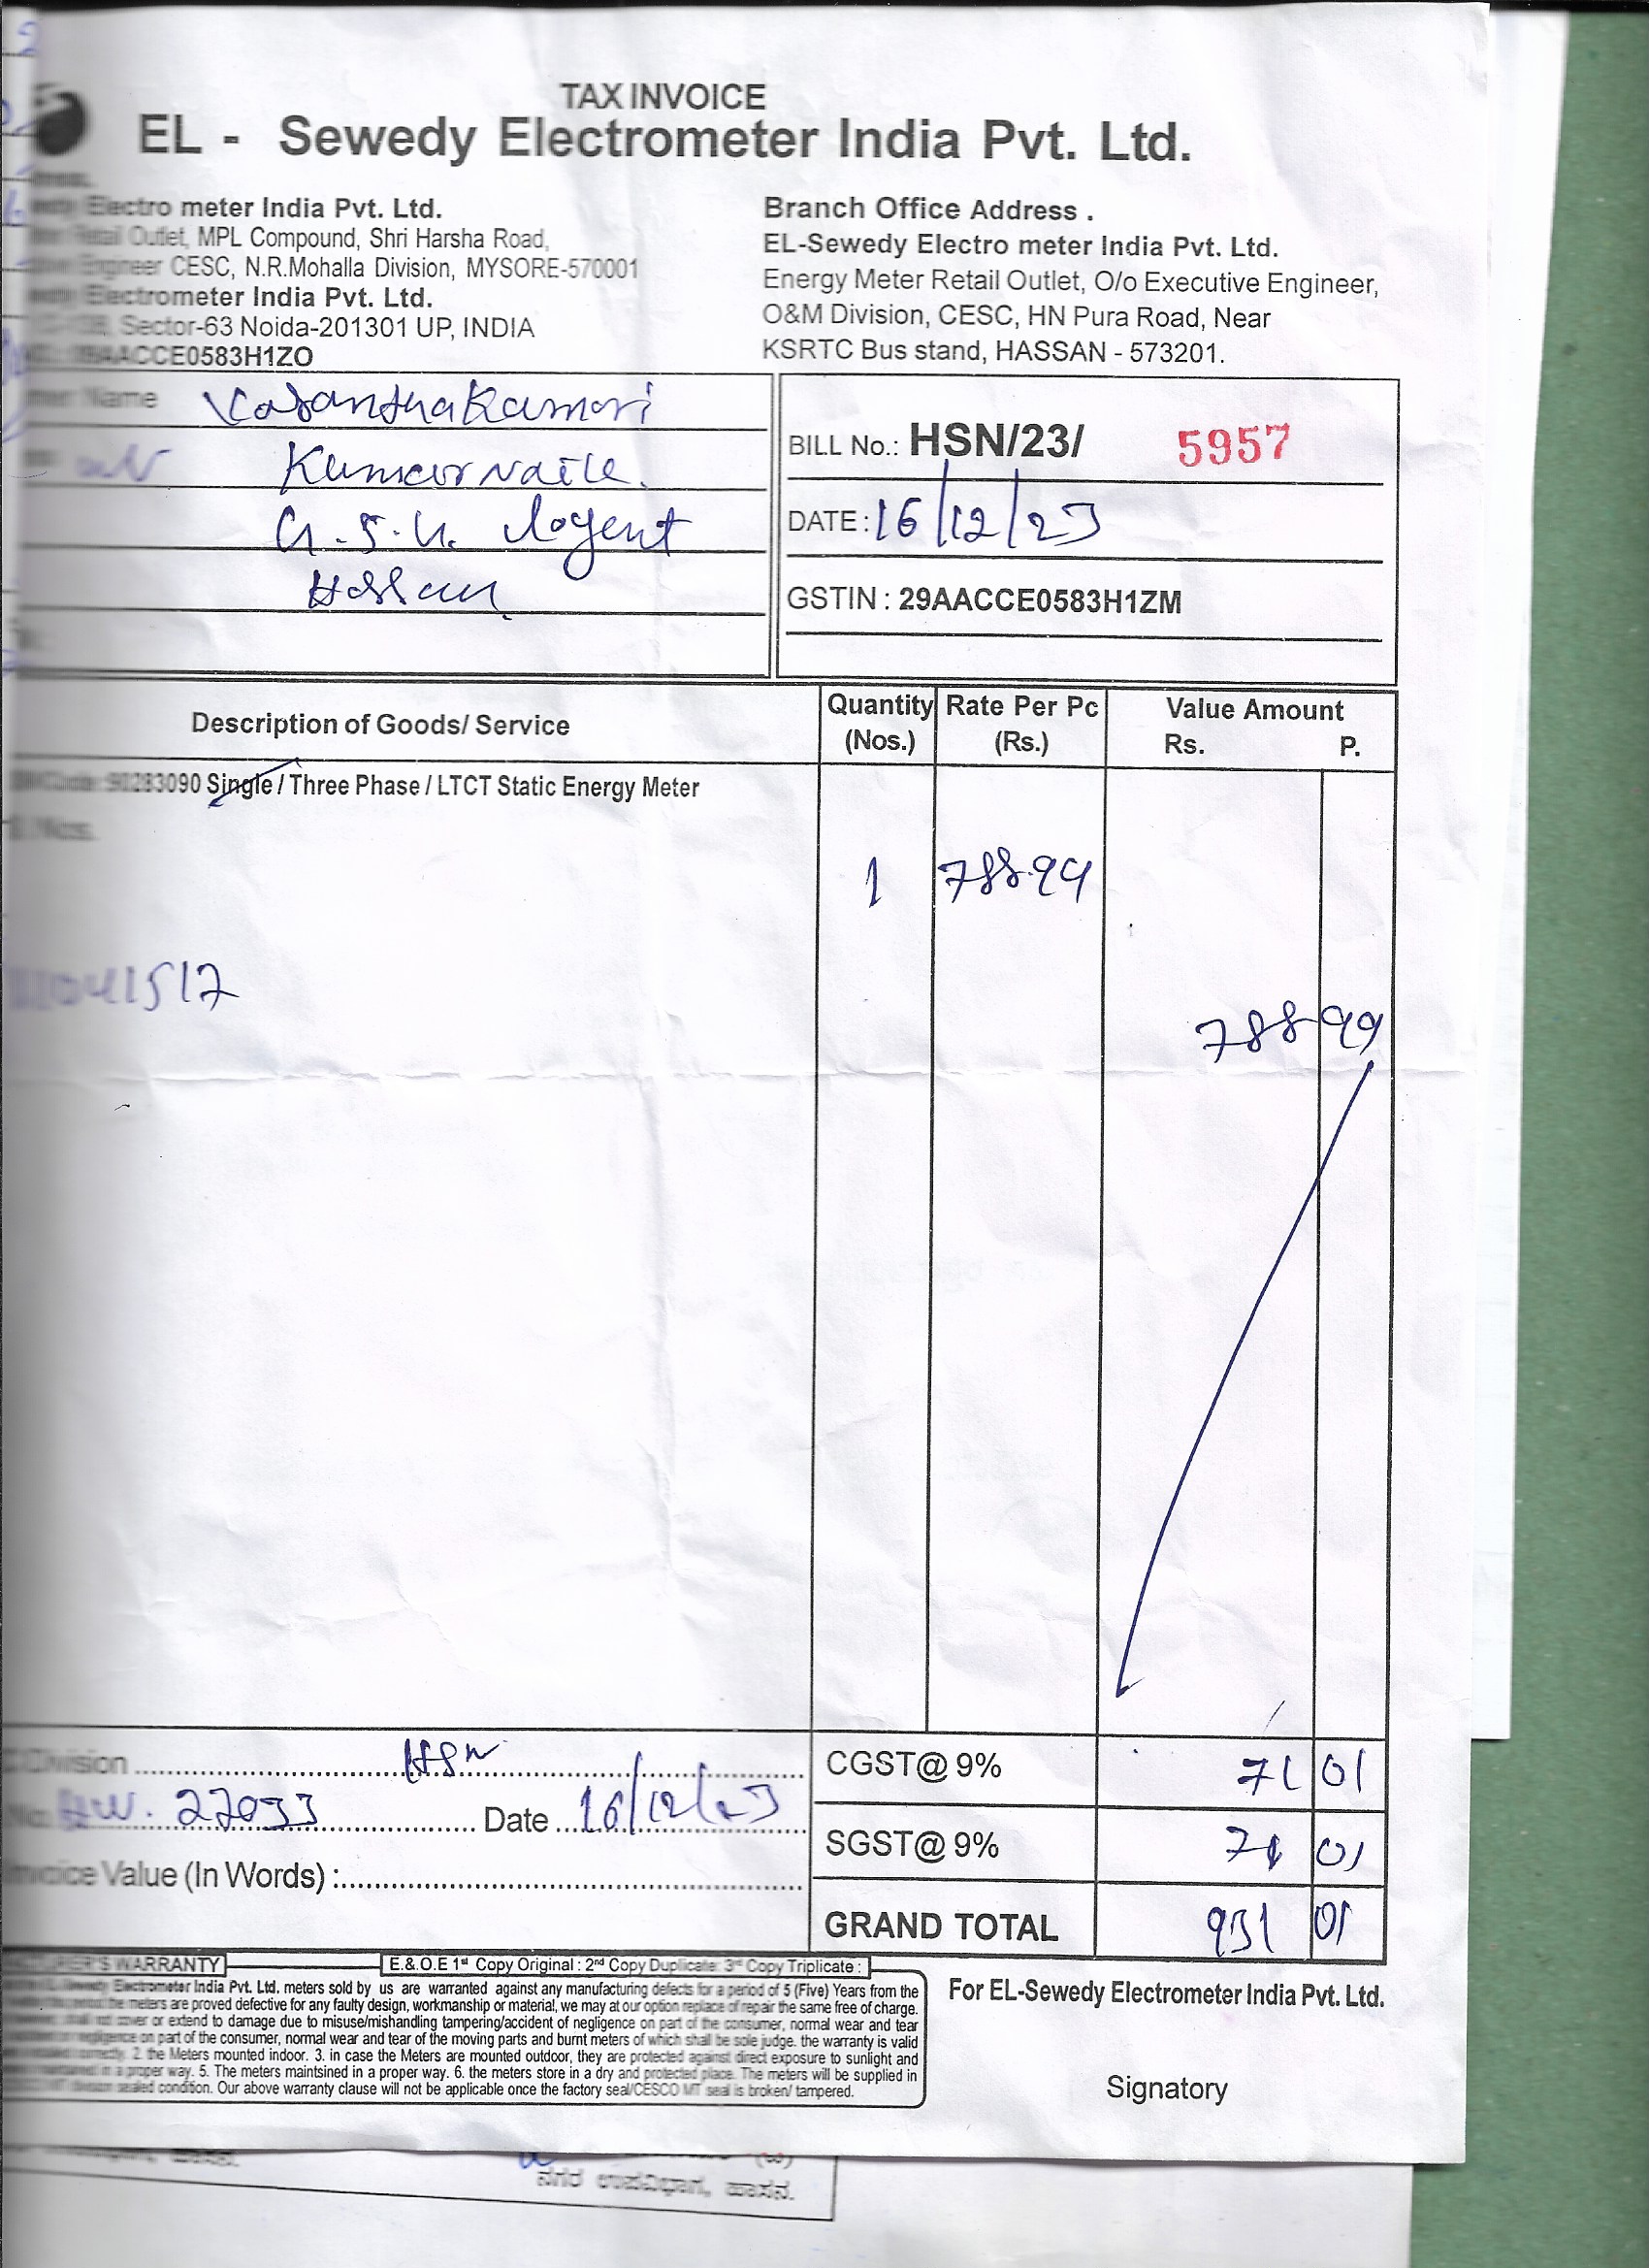 TAX INVOICE
EL - Sewedy Electrometer India Pvt. Ltd.
Electro meter India Pvt. Ltd.
Retail Outlet, MPL Compound, Shri Harsha Road,
Engineer CESC, N.R.Mohalla Division, MYSORE-570001
Electrometer India Pvt. Ltd.
Sector-63 Noida-201301 UP, INDIA
AACCE0583H1ZO
Branch Office Address .
EL-Sewedy Electro meter India Pvt. Ltd.
Energy Meter Retail Outlet, O/o Executive Engineer,
O&M Division, CESC, HN Pura Road, Near
KSRTC Bus stand, HASSAN - 573201.
Name VasanthaKumari
Kumar Naik.
Hassan
BILL No.: HSN/23/ 5957
DATE: 16/12/23
GSTIN : 29AACCE0583H1ZM
Description of Goods/ Service
Quantity (Nos.)
Rate Per Pc (Rs.)
Value Amount
Rs. P.
90283090 Single / Three Phase / LTCT Static Energy Meter
Nos.
1 788.99
041517
788 99
Division HSN
27033 Date 16/12/23
Invoice Value (In Words) :
CGST@ 9% 71 01
SGST@ 9% 71 01
GRAND TOTAL 931 01
WARRANTY
E.&.O.E 1st Copy Original : 2nd Copy Duplicate: 3rd Copy Triplicate :
Electrometer India Pvt. Ltd. meters sold by us are warranted against any manufacturing defects for a period of 5 (Five) Years from the
the meters are proved defective for any faulty design, workmanship or material, we may at our option replace of repair the same free of charge.
cover or extend to damage due to misuse/mishandling tampering/accident of negligence on part of the consumer, normal wear and tear
negligence on part of the consumer, normal wear and tear of the moving parts and burnt meters of which shall be sole judge. the warranty is valid
2. the Meters mounted indoor. 3. in case the Meters are mounted outdoor, they are protected against direct exposure to sunlight and
in a proper way. 5. The meters maintsined in a proper way. 6. the meters store in a dry and protected place. The meters will be supplied in
sealed condition. Our above warranty clause will not be applicable once the factory seal/CESCO MT seal is broken/ tampered.
For EL-Sewedy Electrometer India Pvt. Ltd.
Signatory
ನಗರ ಉಪವಿಭಾಗ, ಹಾಸನ.